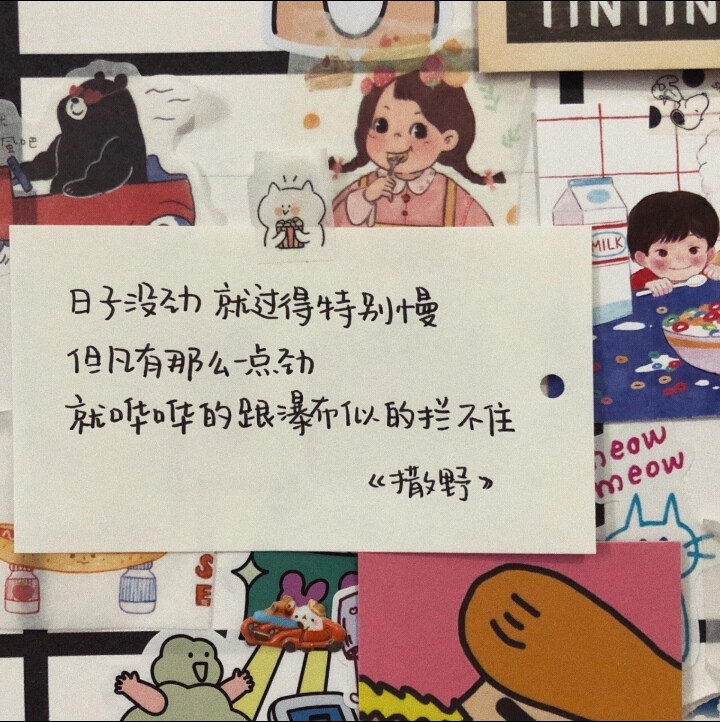 TINTIN
風吧
MILK
日子没劲 就过得特别慢
但凡有那么一点劲
就哗哗的跟瀑布似的拦不住
《撒野》
meow
meow
S
E